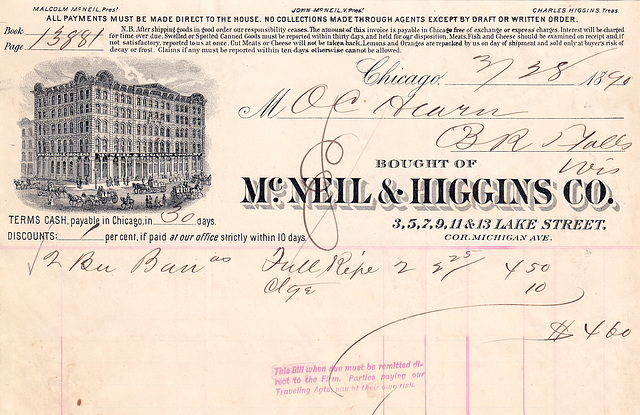 MALCOLM McNEIL, Prest. JOHN McNEIL, V. Prest. CHARLES HIGGINS, Treas.
ALL PAYMENTS MUST BE MADE DIRECT TO THE HOUSE. NO COLLECTIONS MADE THROUGH AGENTS EXCEPT BY DRAFT OR WRITTEN ORDER.
Book
Page 13881
N.B. After shipping goods in good order our responsibility ceases. The amount of this invoice is payable in Chicago free of exchange or express charges. Interest will be charged
for time over due. Swelled or Spoiled Canned Goods must be reported within thirty days, and held for our disposition. Meats, Fish and Cheese should be examined on receipt and, if
not satisfactory, reported to us at once. Cut Meats or Cheese will not be taken back. Lemons and Oranges are repacked by us on day of shipment and sold only at buyer's risk of
decay or frost. Claims if any must be reported within ten days otherwise cannot be allowed.
Chicago, 3/28 1890
M O.C. Hearn
B R Falls
Wis
BOUGHT OF
McNEIL & HIGGINS CO.
3, 5, 7, 9, 11 & 13 LAKE STREET,
COR. MICHIGAN AVE.
TERMS CASH, payable in Chicago, in 30 days.
DISCOUNTS: 1 per cent, if paid at our office strictly within 10 days
2 Bu Ban as Full Ripe 2 2 25 4 50
Ctge 10
$ 4 60
This Bill when due must be remitted di-
rect to the Firm. Parties paying our
Traveling Agts. pay at their own risk.